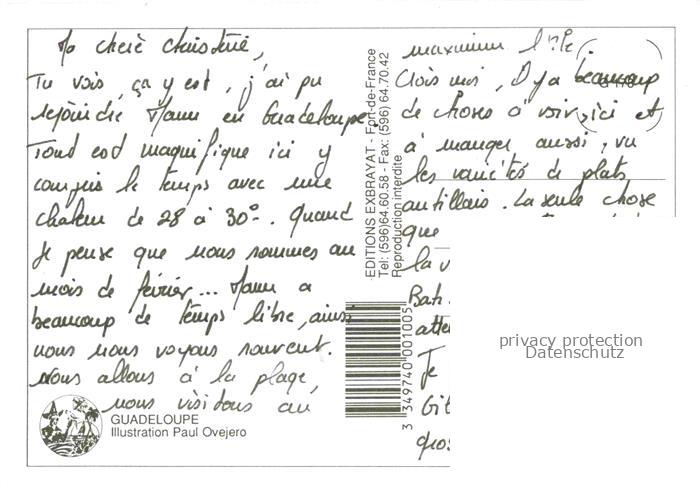 Ma chère Christine,
Tu vois, ça y est, j'ai pu
rejoindre Manu en Guadeloupe
Tout est magnifique ici y
compris le temps avec une
chaleur de 28 à 30°. Quand
je pense que nous sommes au
mois de février... Manu a
beaucoup de temps libre, ainsi
nous nous voyons souvent.
Nous allons à la plage,
nous visitons au
GUADELOUPE
Illustration Paul Ovejero
EDITIONS EXBRAYAT - Fort-de-France
Tel: (596) 64.60.58 - Fax: (596) 64.70.42
Reproduction interdite
3 349740 001005
maximum l'île.
Crois moi, Il y a beaucoup
de choses à voir ici et
à manger aussi, vu
les variétés de plats
antillais. La seule chose
que
la v
Bat
atte
Je
Gît
gros
privacy protection
Datenschutz